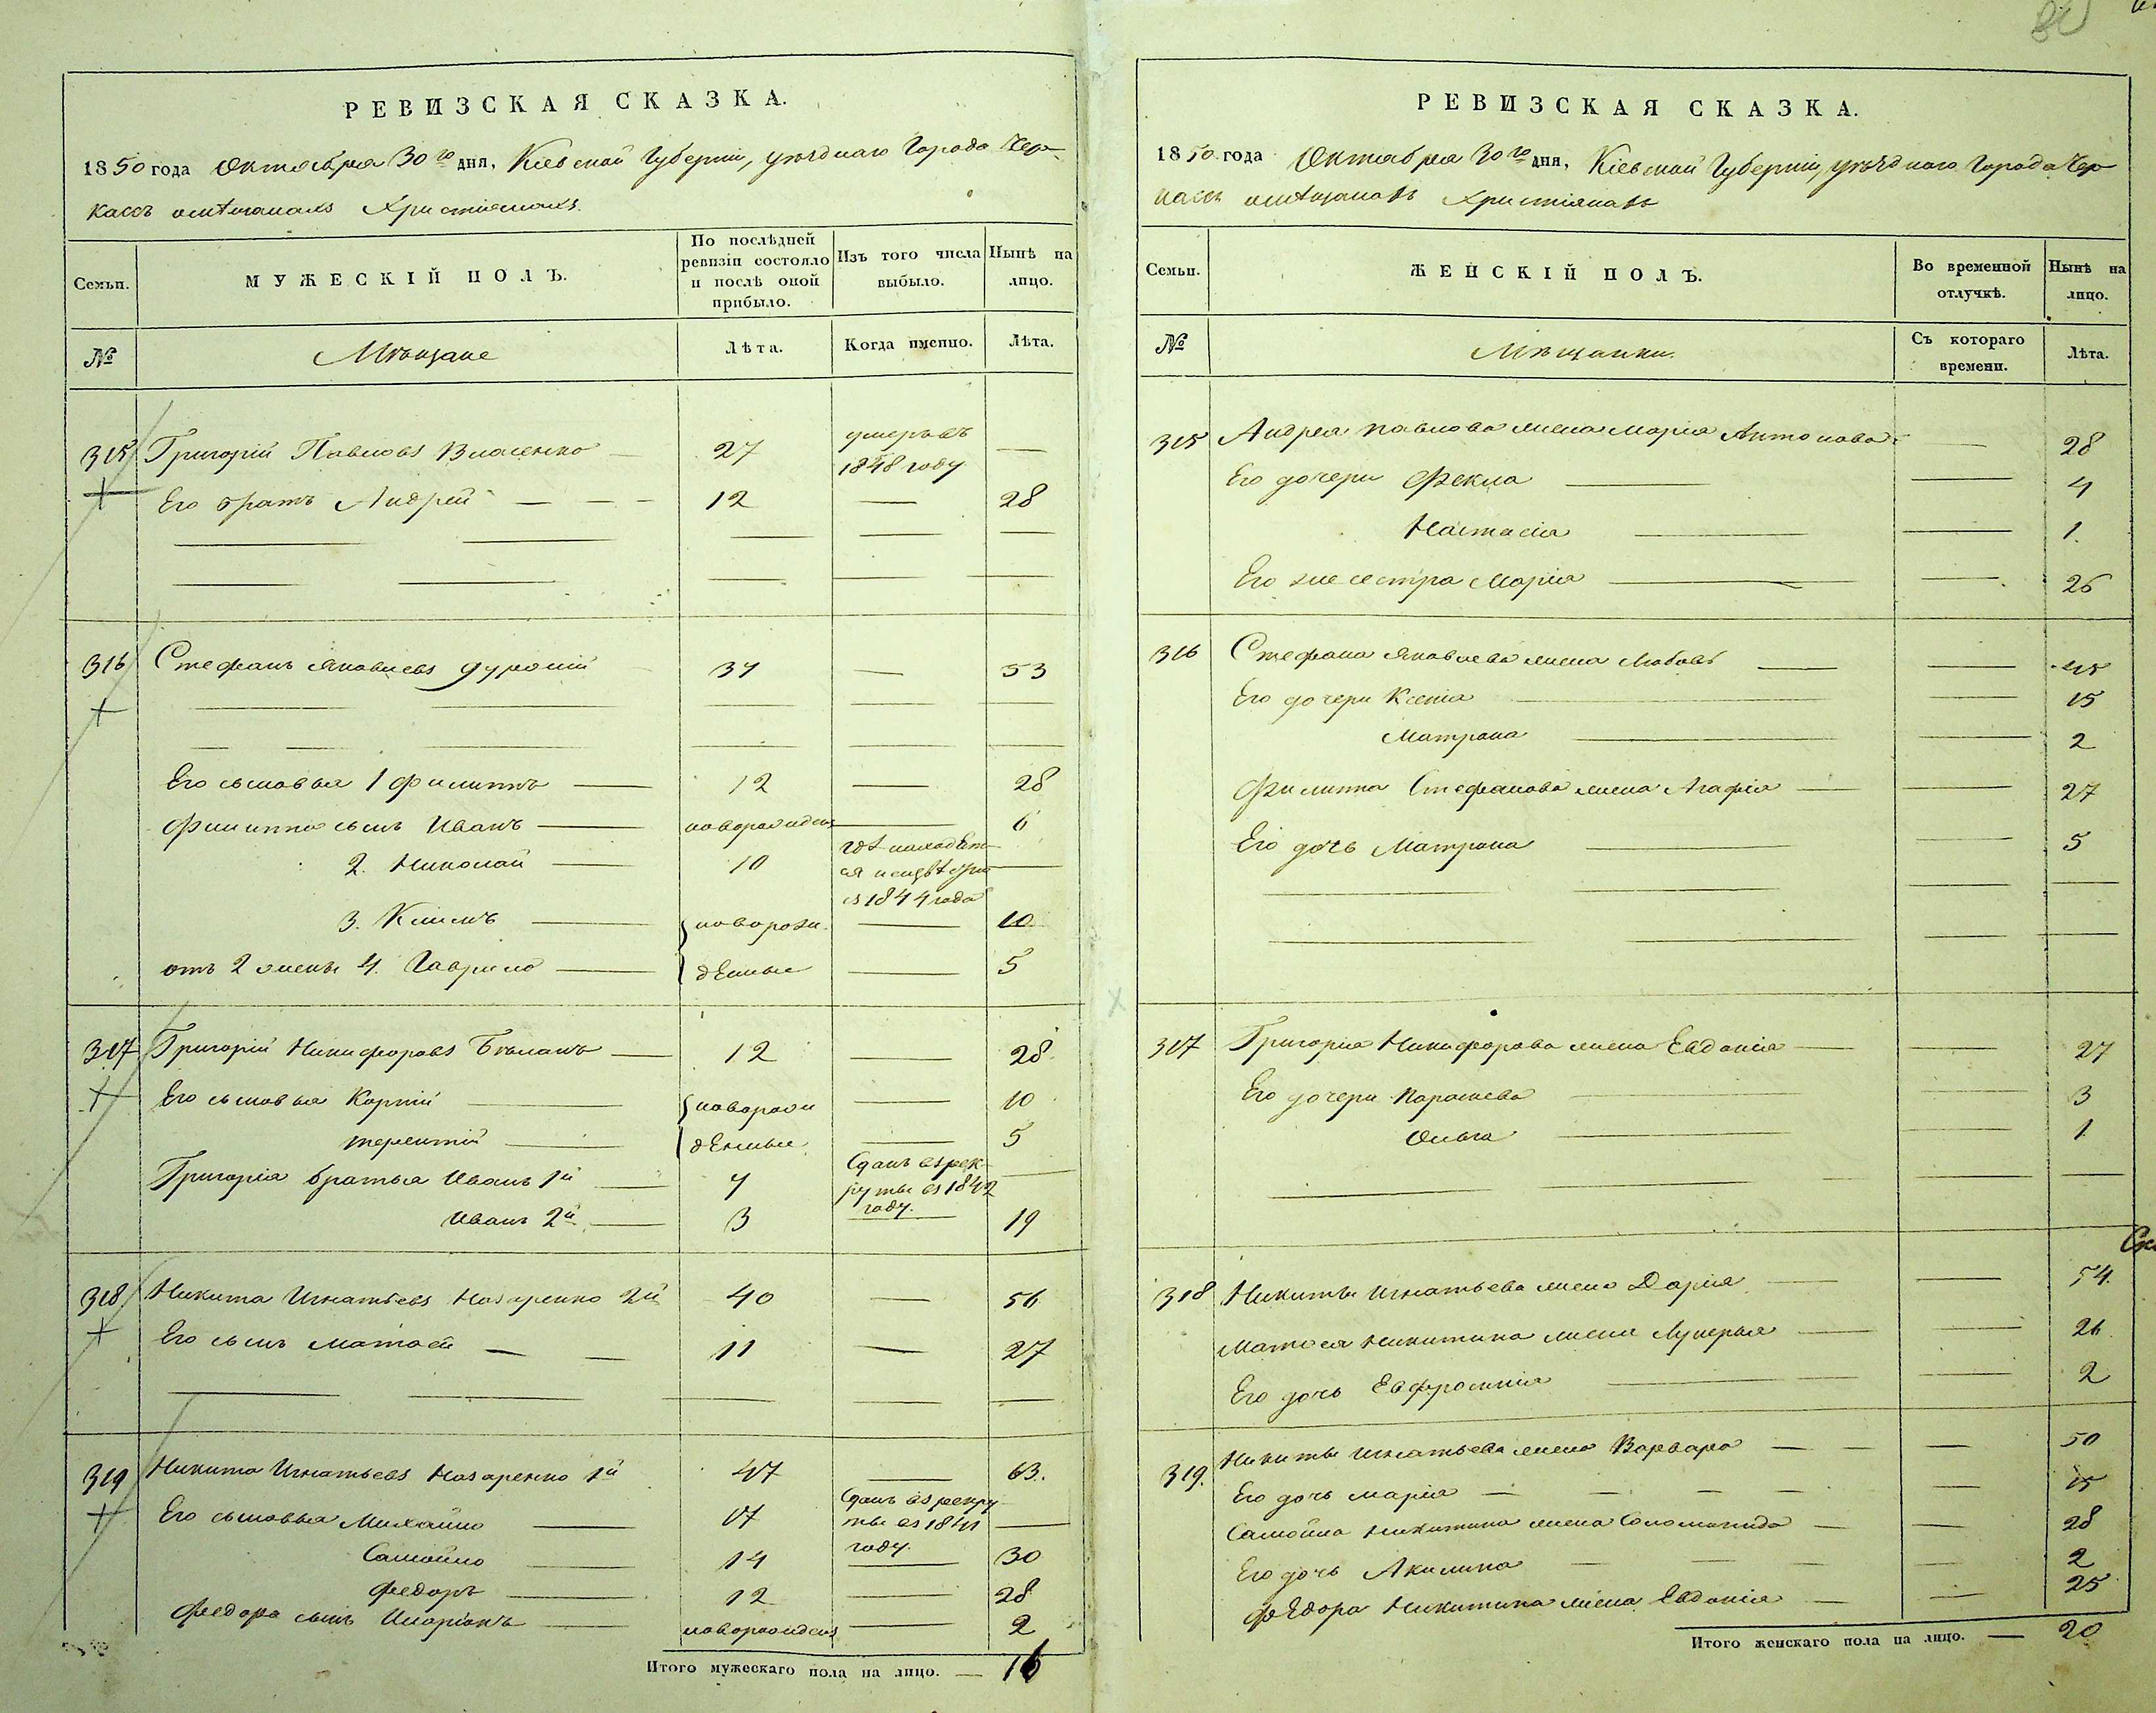 РЕВИЗСКАЯ СКАЗКА.
1850 года Октября 30го дня, Кіевской Губерніи, уѣзднаго Города Чер-
кассъ о мѣщанахъ Христіянахъ.
Семьи.
МУЖЕСКІЙ ПОЛЪ.
По послѣдней ревизіи состояло и послѣ оной прибыло.
Изъ того числа выбыло.
Нынѣ на лицо.
№
Мѣщане
Лѣта.
Когда именно.
Лѣта.
315 Григорій Павловъ Власенко — 27 умеръ въ 1848 году —
Его братъ Андрей — — — 12 — 28
316 Стефанъ Яковлевъ — 53
Его сыновья 1 Филиппъ — 12 — 28
Филиппа сынъ Иванъ — новорожденъ — 6
2. Николай — 10 гдѣ находит-
ся неизвѣстно
съ 1844 года —
3. Климъ — новорож- — 10
отъ 2 жены 4. Гаврило — денные — 5
317 Григорій Никифоровъ Бѣланъ — 12 — 28
Его сыновья Корній — новорож — 10
Терентій — денные — 5
Григорія братья Иванъ 1й — Сданъ въ рек-
руты въ 1842
году. —
Иванъ 2й — 3 — 19
318 Никита Игнатьевъ Назаренко 2й 40 — 56
Его сынъ Матвей — — 11 — 27
319 Никита Игнатьевъ Назаренко 1й 47 — 63.
Его сыновья Михайло — 17 Сданъ въ рекру
ты въ 1841
году. —
Самойло — 14 — 30
Федоръ — 12 — 28
Федора сынъ Иларіонъ — новорожденъ — 2
Итого мужескаго пола на лицо. — 16
РЕВИЗСКАЯ СКАЗКА.
1850 года Октября 30го дня, Кіевской Губерніи, уѣзднаго Города Чер
кассъ о мѣщанахъ Христіянахъ
Семьи.
ЖЕНСКІЙ ПОЛЪ.
Во временной отлучкѣ.
Нынѣ на лицо.
№
Мѣщанки.
Съ котораго времени.
Лѣта.
315 Андрея Павлова жена Марія Антонова — 28
Его дочери Фекла — — 4
Настасія — — 1.
Его же сестра Марія — — 26
316 Стефана Яковлева жена Любовь — — 45
Его дочери Ксенія — — 15
Матрона — — 2
Филиппа Стефанова жена Агафія — — 27
Его дочь Матрона — — 5
317 Григорія Никифорова жена Евдокія — — 27
Его дочери Параскева — — 3
Ольга — — 1
318 Никиты Игнатьева жена Дарія — — 54.
Матвея Никитина жена Лукерья — — 26.
Его дочь Евфросинія — — 2
319. Никиты Игнатьева жена Варвара — — — 50
Его дочь Марія — — — — — 15
Самойла Никитина жена Соломонида — — 28
Его дочь Акилина — — — — 2
Федора Никитина жена Евдокія — — 25
Итого женскаго пола на лицо. — 20